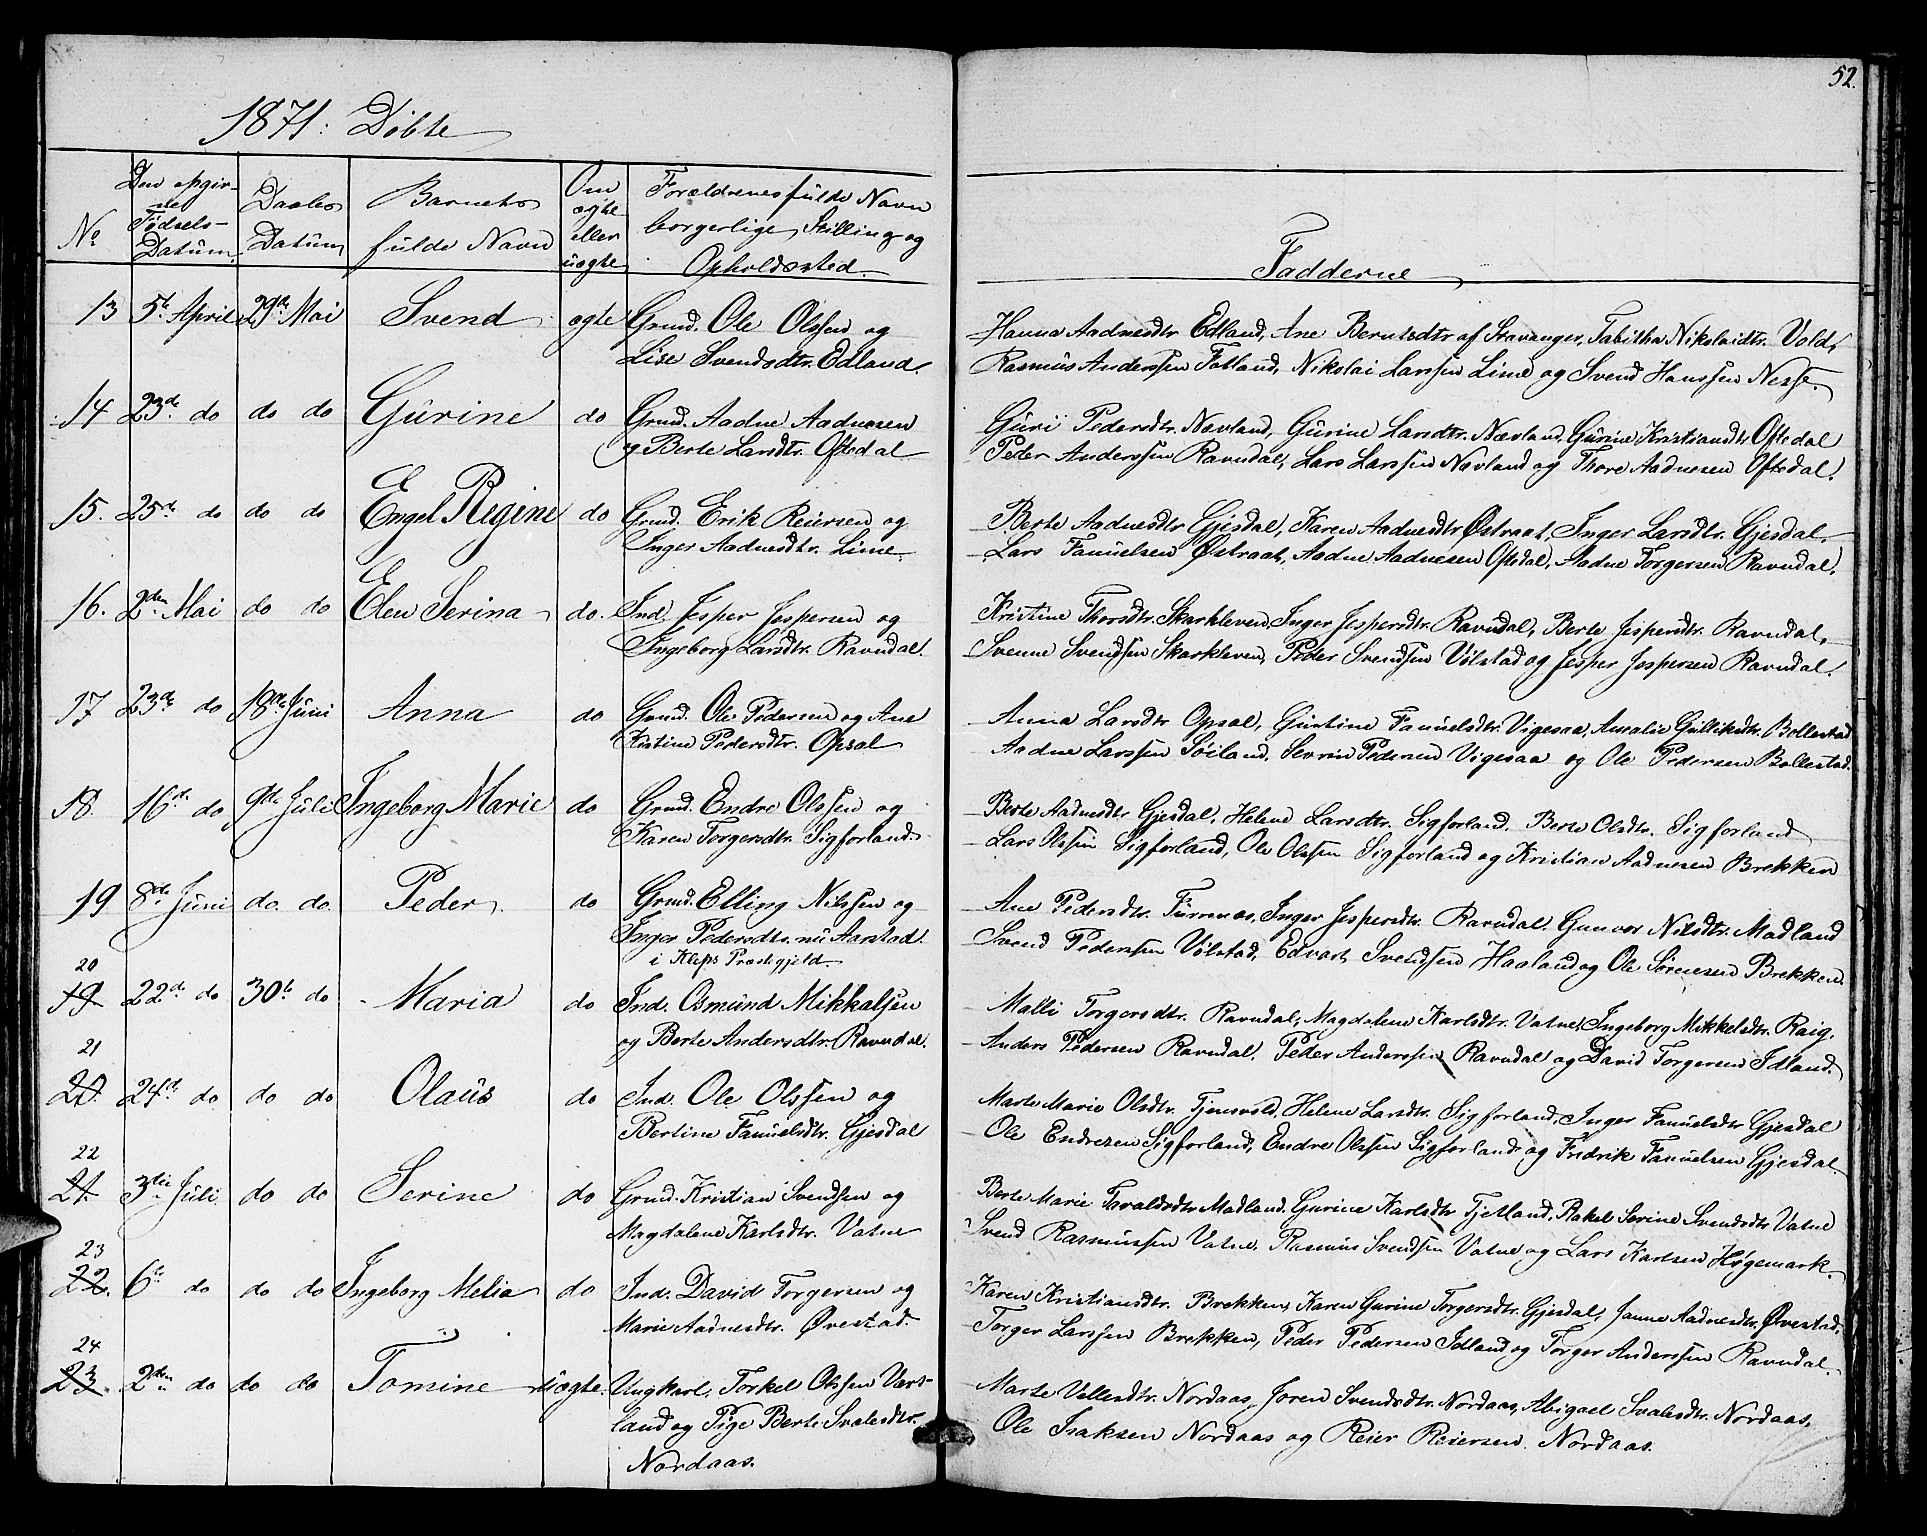 52.
1871. Døbte
No
Den opgivne Fødsels-Datum.
Daabs Datum
Barnets fulde Navn
Om ægte eller uægte
Forældrenes fulde Navn borgerlige Stilling og Opholdssted.
Fadderne
13 5te April 29de Mai Svend ægte Grmd. Ole Olssen og
Lise Svendsdtr. Edland.
Hanna Aadnesdtr Edland, Ane Berntsdtr af Stavanger, Tabitha Nikolaidtr. Vold,
Rasmus Anderssen Fotland, Nikolai Larssen Lime og Svend Hanssen Nesse.
14 23de do do do Gurine do Grmd. Aadne Aadnesen
og Berte Larsdtr. Oftedal
Guri Pedersdtr. Nævland, Gurine Larsdtr. Nævland, Gurine Kristiansdtr Oftedal
Peder Anderssen Ravndal, Lars Larssen Nævland og Thore Aadnesen Oftedal.
15. 25de do do do Engel Regine do Grmd. Erik Reiersen og
Inger Aadnesdtr. Lime
Berte Aadnesdtr Gjesdal, Karen Aadnesdtr Østraat, Inger Larsdtr. Gjesdal.
Lars Fanuelsen Østraat, Aadne Aadnesen Oftedal, Aadne Torgersen Ravndal.
16. 2den Mai do do Elen Serina do. Ind. Jesper Jespersen og
Ingeborg Larsdtr. Ravndal.
Kristine Thorsdtr. Skarkleven, Inger Jespersdtr. Ravndal, Berte Jespersdtr. Ravndal,
Svenne Svendsen Skarkleven, Peder Svendsen Vølstad og Jesper Jespersen Ravndal.
17 23de do 18de Juni Anna do Grmd. Ole Pedersen og Ane
Kistine Pedersdtr. Opsal
Anna Larsdtr Opsal, Gurine Fanuelsdtr. Vigesaa, Amalie Gulliksdtr. Bollestad
Aadne Larssen Søiland, Sevrin Pedersen Vigesaa og Ole Pedersen Bollestad.
18. 16de do 9de Juli Ingeborg Marie do Grmd. Endre Olssen og
Karen Torgersdtr. Sigforland
Berte Aadnesdtr Gjesdal, Helene Larsdtr. Sigforland. Berte Olsdtr. Sigforland
Lars Olssen Sigforland, Ole Olssen Sigforland og Kristian Aadnesen Brekken
19 8de Juni do. do. Peder. do Grmd. Elling Nilssen og
Inger Pedersdtr. nu Aarstad
i Kleps Præstegjeld.
Ane Pedersdtr. Furrenes, Inger Jespersdtr. Ravndal. Gunvor Nilsdtr. Madland
Svend Pedersen Vølstad, Edvart Svendsen Haaland og Ole Sørensen Brekken.
20
19 22de do 30te do Maria do Ind. Osmund Mikkalsen
og Berte Andersdtr. Ravndal.
Malli Torgersdtr. Ravndal, Magdalena Karlsdtr. Vatne, Ingeborg Mikkelsdtr. Raig.
Anders Pedersen Ravndal. Peder Anderssen Ravndal og David Torgersen Idland.
21
20. 24de do do do Olaus do Ind. Ole Olssen og
Bertine Fanuelsdtr. Gjesdal
Marte Marie Olsdtr. Tjensvold, Helene Larsdtr. Sigforland, Inger Fanuelsdtr Gjesdal
Ole Endresen Sigforland, Endre Olssen Sigforland og Fredrik Fanuelsen Gjesdal
22
21. 3die Juli do do Serine do Grmd. Kristian Svendsen og
Magdalene Karlsdtr. Vatne
Berte Marie Taraldsdtr Madland. Gurine Karlsdtr Tjetland, Rakel Serine Svendsdtr Vatne
Svend Rasmussen Vatne, Rasmus Svendsen Vatne og Lars Karlsen Høgemark.
23
22. 6te do do do Ingeborg Melia do Ind. David Torgersen og
Marie Aadnesdtr. Øvestad
Karen Kristiansdtr. Brekken, Karen Gurine Torgersdtr. Gjesdal, Janne Aadnesdtr. Øvestad,
Torger Larssen Brekken, Peder Pedersen Idland og Torger Anderssen Ravndal.
24
23. 2den do do do Tomine uægte. Ungkarl, Torkel Olssen Vars-
land og Pige Berte Svalesdtr.
Nordaas.
Marte Vellesdtr. Nordaas, Joren Svendsdtr. Nordaas, Abigael Svalesdtr. Nordaas,
Ole Isaksen Nordaas og Reier Reiersen. Nordaas.